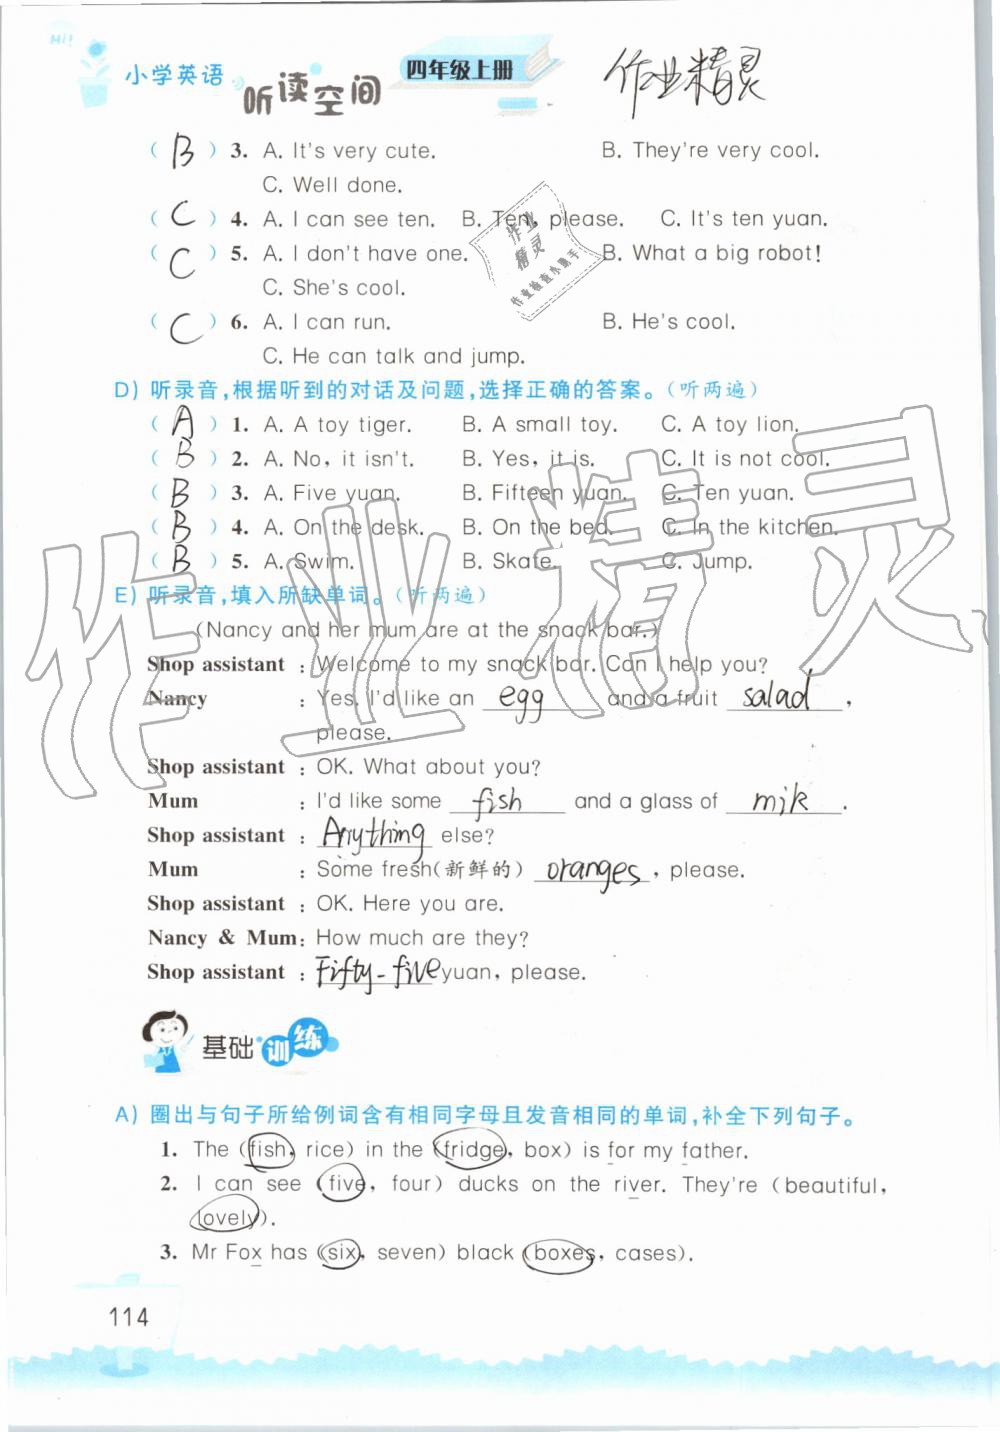 Hi!
小学英语 听读空间 四年级上册 作业精灵
( B ) 3. A. It's very cute. B. They're very cool.
C. Well done.
( C ) 4. A. I can see ten. B. Ten, please. C. It's ten yuan.
( C ) 5. A. I don't have one. B. What a big robot!
C. She's cool.
( C ) 6. A. I can run. B. He's cool.
C. He can talk and jump.
D) 听录音,根据听到的对话及问题,选择正确的答案。(听两遍)
( A ) 1. A. A toy tiger. B. A small toy. C. A toy lion.
( B ) 2. A. No, it isn't. B. Yes, it is. C. It is not cool.
( B ) 3. A. Five yuan. B. Fifteen yuan. C. Ten yuan.
( B ) 4. A. On the desk. B. On the bed. C. In the kitchen.
( B ) 5. A. Swim. B. Skate. C. Jump.
E) 听录音,填入所缺单词。(听两遍)
(Nancy and her mum are at the snack bar.)
Shop assistant : Welcome to my snack bar. Can I help you?
Nancy : Yes. I'd like an egg and a fruit salad,
please.
Shop assistant : OK. What about you?
Mum : I'd like some fish and a glass of mik.
Shop assistant : Anything else?
Mum : Some fresh(新鲜的) oranges, please.
Shop assistant : OK. Here you are.
Nancy & Mum: How much are they?
Shop assistant : Fifty-five yuan, please.
基础训练
A) 圈出与句子所给例词含有相同字母且发音相同的单词,补全下列句子。
1. The (fish, rice) in the (fridge, box) is for my father.
2. I can see (five, four) ducks on the river. They're (beautiful,
lovely).
3. Mr Fox has (six, seven) black (boxes, cases).
114
作业精灵
作业精灵
作业检查小能手